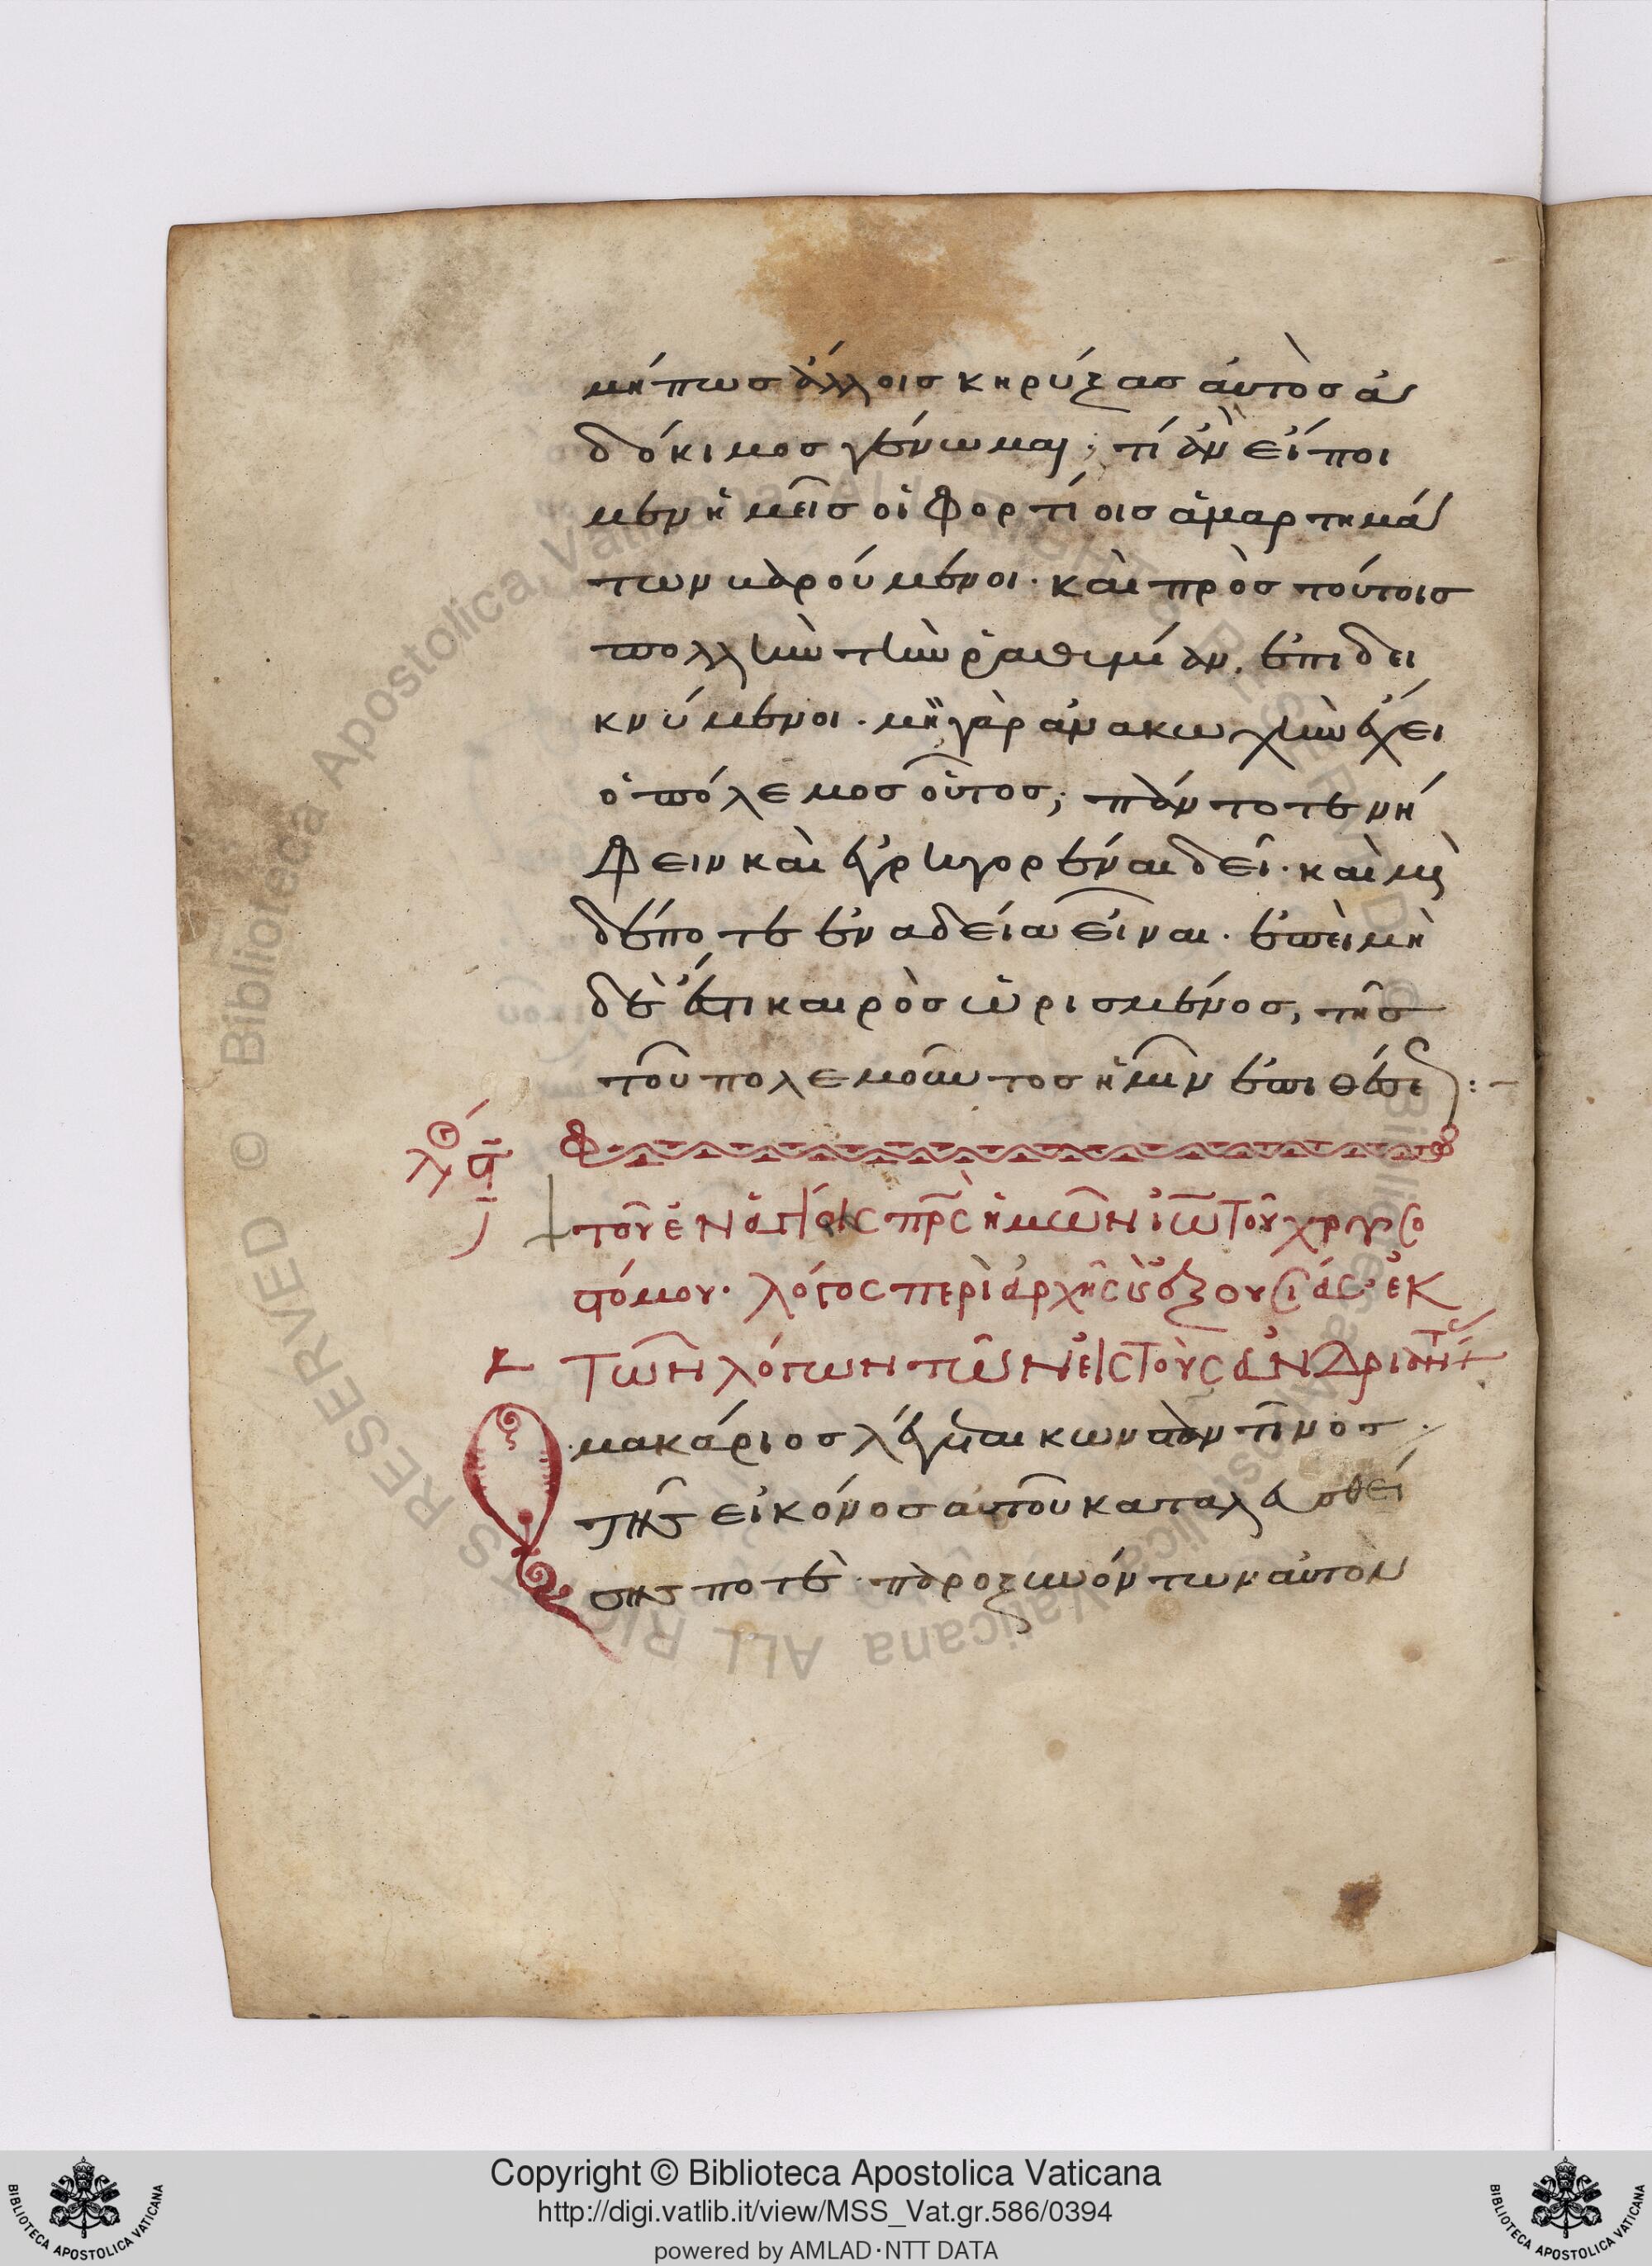 μήπωσ ἄλλοισ κηρύξασ αὐτὸσ ἀ
δόκιμοσ γένωμαι; τί ἂν εἴποι
μεν ἡμεῖσ οἱ φορτίοισ ἁμαρτημά
των βαρούμενοι· καὶ πρὸσ τούτοισ
πολλὴν τὴν ῥαθυμίαν ἐπιδει
κνύμενοι· μὴ γὰρ ἀνακωχὴν ἔχει
ὁ πόλεμοσ οὗτοσ; πάντοτε νή
φειν καὶ ἐγρηγορέναι δεῖ· καὶ μη
δέποτε ἐν ἀδεία εἶναι· ἐπεὶ μὴ
δὲ ἔστι καιρὸσ ὡρισμένοσ, τῆσ
τοῦ πολεμοῦντοσ ἡμῖν ἐπιθέσε :-
τοῦ ἐν ἁγίοις πρς ἡμῶν ιω τοῦ χρυσο
στόμου· λόγος περὶ ἀρχῆς κ ἐξουσίας· ἐκ
τῶν λόγων τῶν εἰς τοὺς ἀνδριάντ
Ὁ μακάριοσ λέγεται κωνσταντῖνοσ·
τῆσ εἰκόνοσ αὐτοῦ καταλευσθεί
σησ ποτὲ· παροξυνόντων αὐτὸν
Copyright © Biblioteca Apostolica Vaticana
http://digi.vatlib.it/view/MSS_Vat.gr.586/0394
powered by AMLAD·NTT DATA
BIBLIOTECA APOSTOLICA VATICANA
BIBLIOTECA APOSTOLICA VATICANA